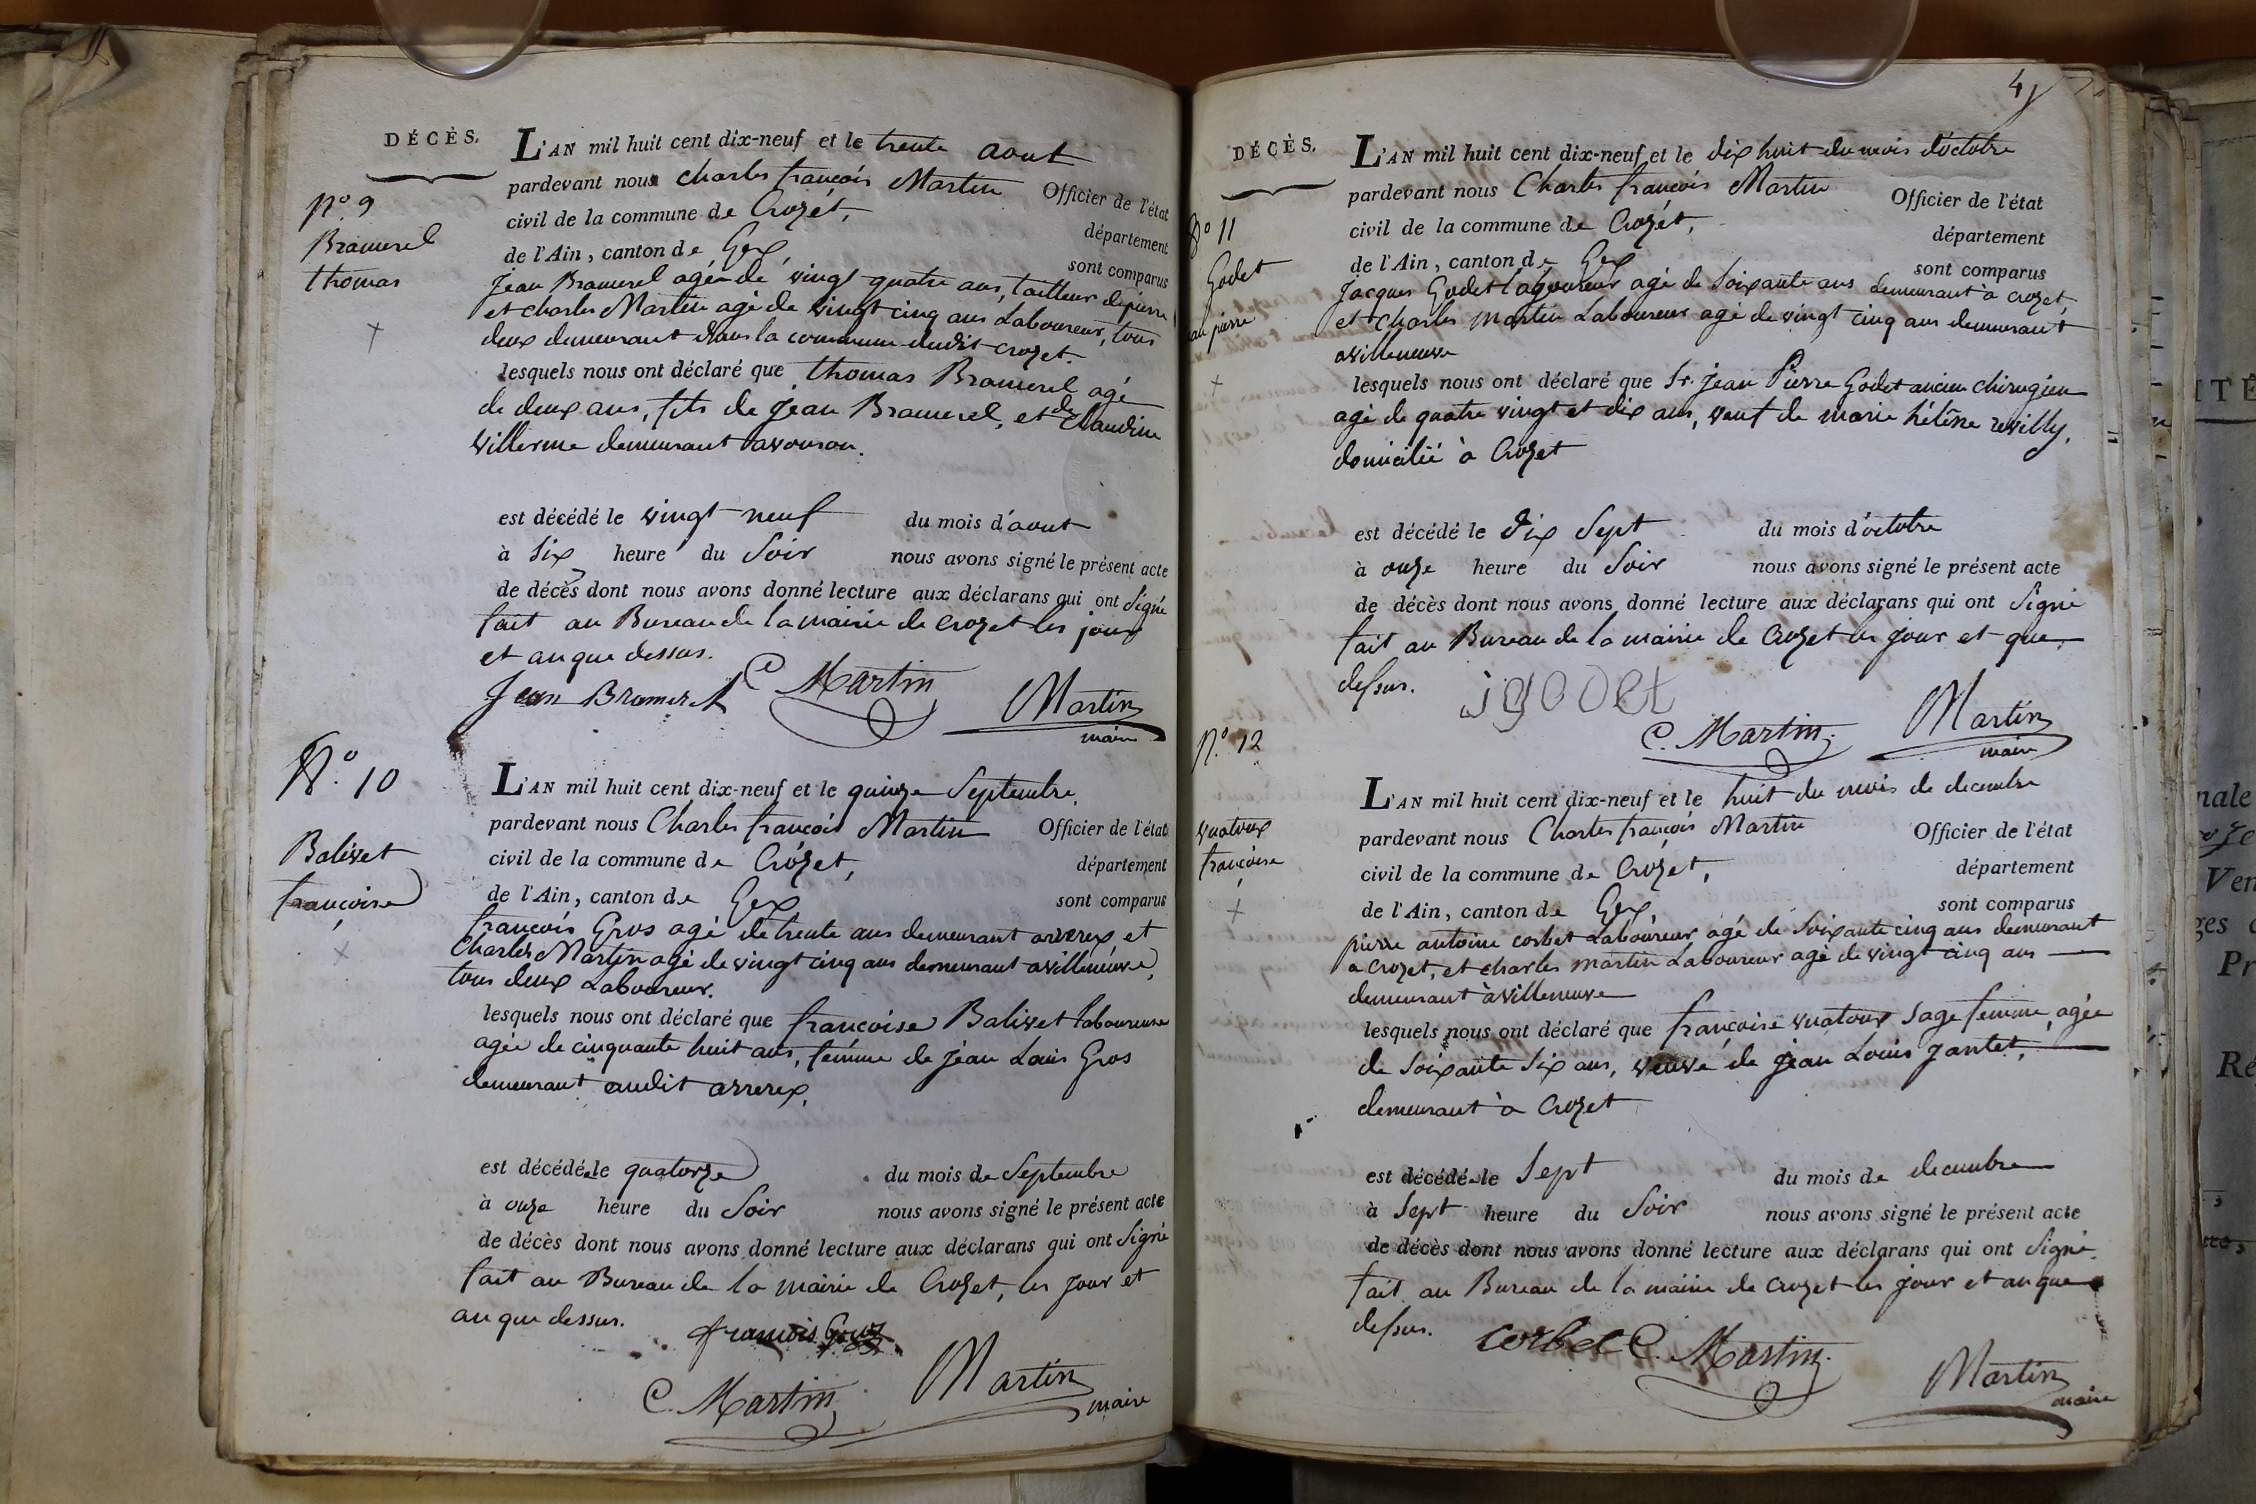 DÉCÈS.
N.o 9
Bramerel
thomas
L'AN mil huit cent dix-neuf et le trente aout
pardevant nous Charles françois Martin Officier de l'état
civil de la commune de Crozét, département
de l'Ain, canton de Gex sont comparus
jean Bramerel agée de vingt quatre ans, tailleur de pierre
et charles Martin agé de vingt cinq ans Laboureur, tous
deux demeurant dans la commune dudit crozet.
lesquels nous ont déclaré que thomas Bramerel agé
de deux ans, fils de Jean Bramerel, et de Claudine
villerme demeurant avouson.
est décédé le vingt neuf du mois d'aout
à Six heure du Soir nous avons signé le présent acte
de décès dont nous avons donné lecture aux déclarans qui ont Signé
fait au Bureau de la mairie de crozet les jour
et an que dessus.
Jean Bramerel C Martin Martin
maire
N.o 10
Balivet
françoise
L'AN mil huit cent dix-neuf et le quinze Septembre.
pardevant nous Charles françois Martin Officier de l'état
civil de la commune de Crózet, département
de l'Ain, canton de Gex sont comparus
françois Gros agé de trente ans demeurant arverex, et
Charles Martin agé de vingt cinq ans demeurant avilleneuve,
tous deux Laboureur.
lesquels nous ont déclaré que françoise Balivet laboureuse
agée de cinquante huit ans, femme de jean Louis Gros
demeurant audit arrerex.
est décédée le quatorze du mois de Septembre
à onze heure du Soir nous avons signé le présent acte
de décès dont nous avons donné lecture aux déclarans qui ont Signé
fait au Bureau de la mairie de Crozet, les jour et
an que dessus.
francois Gros
C. Martin Martin
maire
4
DÉCÈS.
No 11
Godet
jean pierre
L'AN mil huit cent dix-neuf et le dix huit du mois d'octobre
pardevant nous Charles françois Martin Officier de l'état
civil de la commune de Crozét, département
de l'Ain, canton de Gex sont comparus
Jacques Godet laboureur agé de Soixante ans demeurant à crozet,
et Charles martin Laboureur agé de vingt cinq ans demeurant
avilleneuve
lesquels nous ont déclaré que Sr. jean Pierre Godet ancien chirugien
agé de quatre vingt et dix ans, veuf de marie hélène revilly,
domicilié à Crozet
est décédé le dix Sept du mois d'octobre
à onze heure du Soir nous avons signé le présent acte
de décès dont nous avons donné lecture aux déclarans qui ont Signé
fait au Bureau de la mairie de Crozet les jour et que
dessus. jgodet
C. Martin Martin
maire
N.o 12
vuatoux
françoise
L'AN mil huit cent dix-neuf et le huit du mois de decembre
pardevant nous Charles françois Martin Officier de l'état
civil de la commune de Crozét, département
de l'Ain, canton de Gex sont comparus
pierre antoine corbet Laboureur agé de Soixante cinq ans demeurant
a crozet, et charles martin Laboureur agé de vingt cinq ans
demeurant à villeneuve
lesquels nous ont déclaré que françoise vuatoux Sage femme, agée
de Soixante Six ans, veuve de jean Louis jantet,
demeurant à Crozet
est décédée le Sept du mois de decembre
à Sept heure du Soir nous avons signé le présent acte
de décès dont nous avons donné lecture aux déclarans qui ont Signé.
fait au Bureau de la mairie de Crozet les jour et an que
dessus. corbet C. Martin
Martin
maire